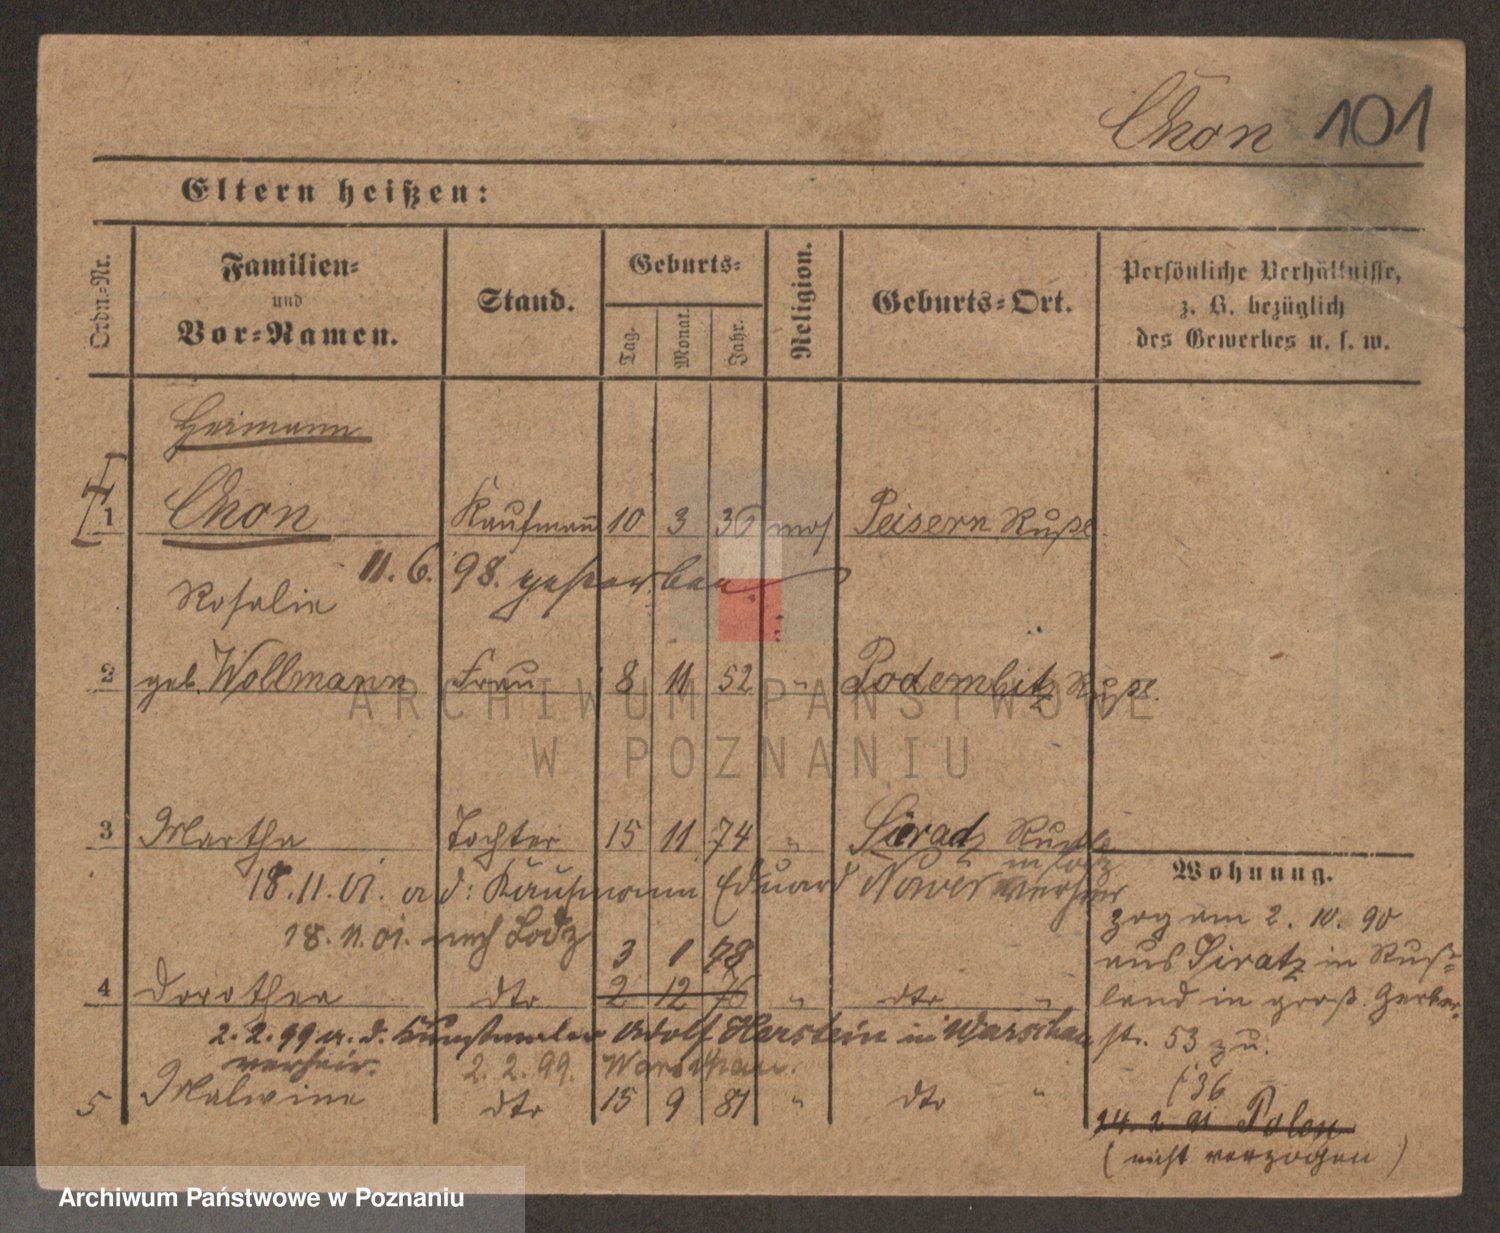 Chon 101
Eltern heißen:
Ordn.-Nr.
Familien- und Vor-Namen.
Stand.
Geburts-
Tag. Monat. Jahr.
Religion.
Geburts-Ort.
Persönliche Verhältnisse,
z. B. bezüglich
des Gewerbes u. s. w.
Hermann
1 Chon Kaufmann 10 3 36 mos Peisern Rußl
11. 6. 98. gestorben
Rosalie
2 geb. Wollmann Frau 8 11 52 " Podembitz Rußl.
ARCHIWUM PAŃSTWOWE
W POZNANIU
3 Martha Tochter 15 11 74 " Sieradz Rußl
in Lodz
18. 11. 01. a d: Kaufmann Eduard verheir
18. 11. 01. nach Lodz
3 1 78
4 Dorothea dto 2 12 76 " dto "
2. 2. 99 a. d. Kunstmaler Adolf Harstein in Warschau
verheir. 2. 2. 99. Warschau.
5 Malwine dto 15 9 81 " dto "
Wohnung.
zog am 2. 10. 90
aus Siratz in Ruß-
land in groß. Gerber-
str. 53 zu.
/36
24. 2. 91 Polen
(nicht verzogen)
Archiwum Państwowe w Poznaniu